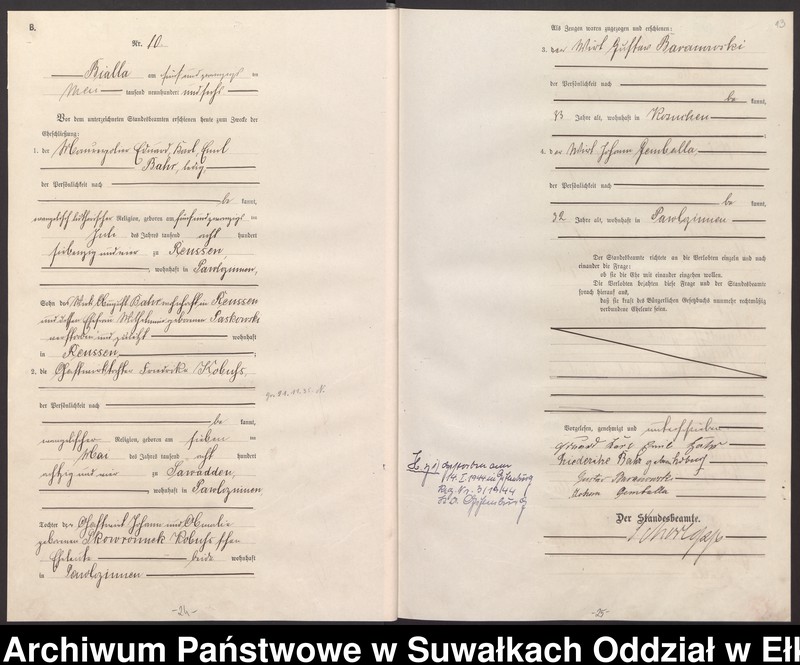 B.
Nr. 10.
Bialla am fünfundzwanzigsten
Mai tausend neunhundert und sechs
Vor dem unterzeichneten Standesbeamten erschienen heute zum Zwecke der
Eheschließung:
1. der Maurerpolier Eduard Karl Emil
Bahr, ledig,
der Persönlichkeit nach
be kannt,
evangelisch lutherischer Religion, geboren am fünfundzwanzigsten
des Jahres tausend acht hundert
siebenzig und vier zu Reussen
, wohnhaft in Pawlozinnen,
Sohn des Wirts August Bahr, wohnhaft in Reussen
und dessen Ehefrau Wilhelmine geborenen Paskowski
verstorben und zuletzt wohnhaft
in Reussen.
2. die Gastwirtstochter Friederike Kobuss,
der Persönlichkeit nach
be kannt,
evangelischer Religion, geboren am sieben ten
Mai des Jahres tausend acht hundert
achtzig und vier zu Sawadden,
, wohnhaft in Pawlozinnen,
Tochter der Gastwirt Johann und Amalie
geborenen Skowronnek Kobuss'schen
Eheleute beide wohnhaft
in Pawlozinnen
-24-
13
Als Zeugen waren zugezogen und erschienen:
3. der Wirt Gustav Baranowski
der Persönlichkeit nach
be kannt,
33 Jahre alt, wohnhaft in
4. der Wirt Johann Gemballa
der Persönlichkeit nach
be kannt,
32 Jahre alt, wohnhaft in Pawlozinnen
Der Standesbeamte richtete an die Verlobten einzeln und nach
einander die Frage:
ob sie die Ehe mit einander eingehen wollen.
Die Verlobten bejahten diese Frage und der Standesbeamte
sprach hierauf aus,
daß sie kraft des Bürgerlichen Gesetzbuchs nunmehr rechtmäßig
verbundene Eheleute seien.
Vorgelesen, genehmigt und unterschrieben
Eduard Karl Emil Bahr
Friederike Bahr geb. Kobuss
Gustav Baranowski
Johann Gemballa
Der Standesbeamte.
gestorben am
14. I. 1944 in
-25-
Archiwum Państwowe w Suwałkach Oddział w Ełk